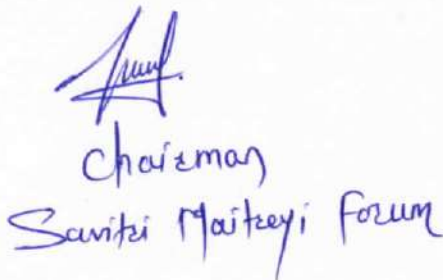 Chairman
Savitri Maitreyi Forum